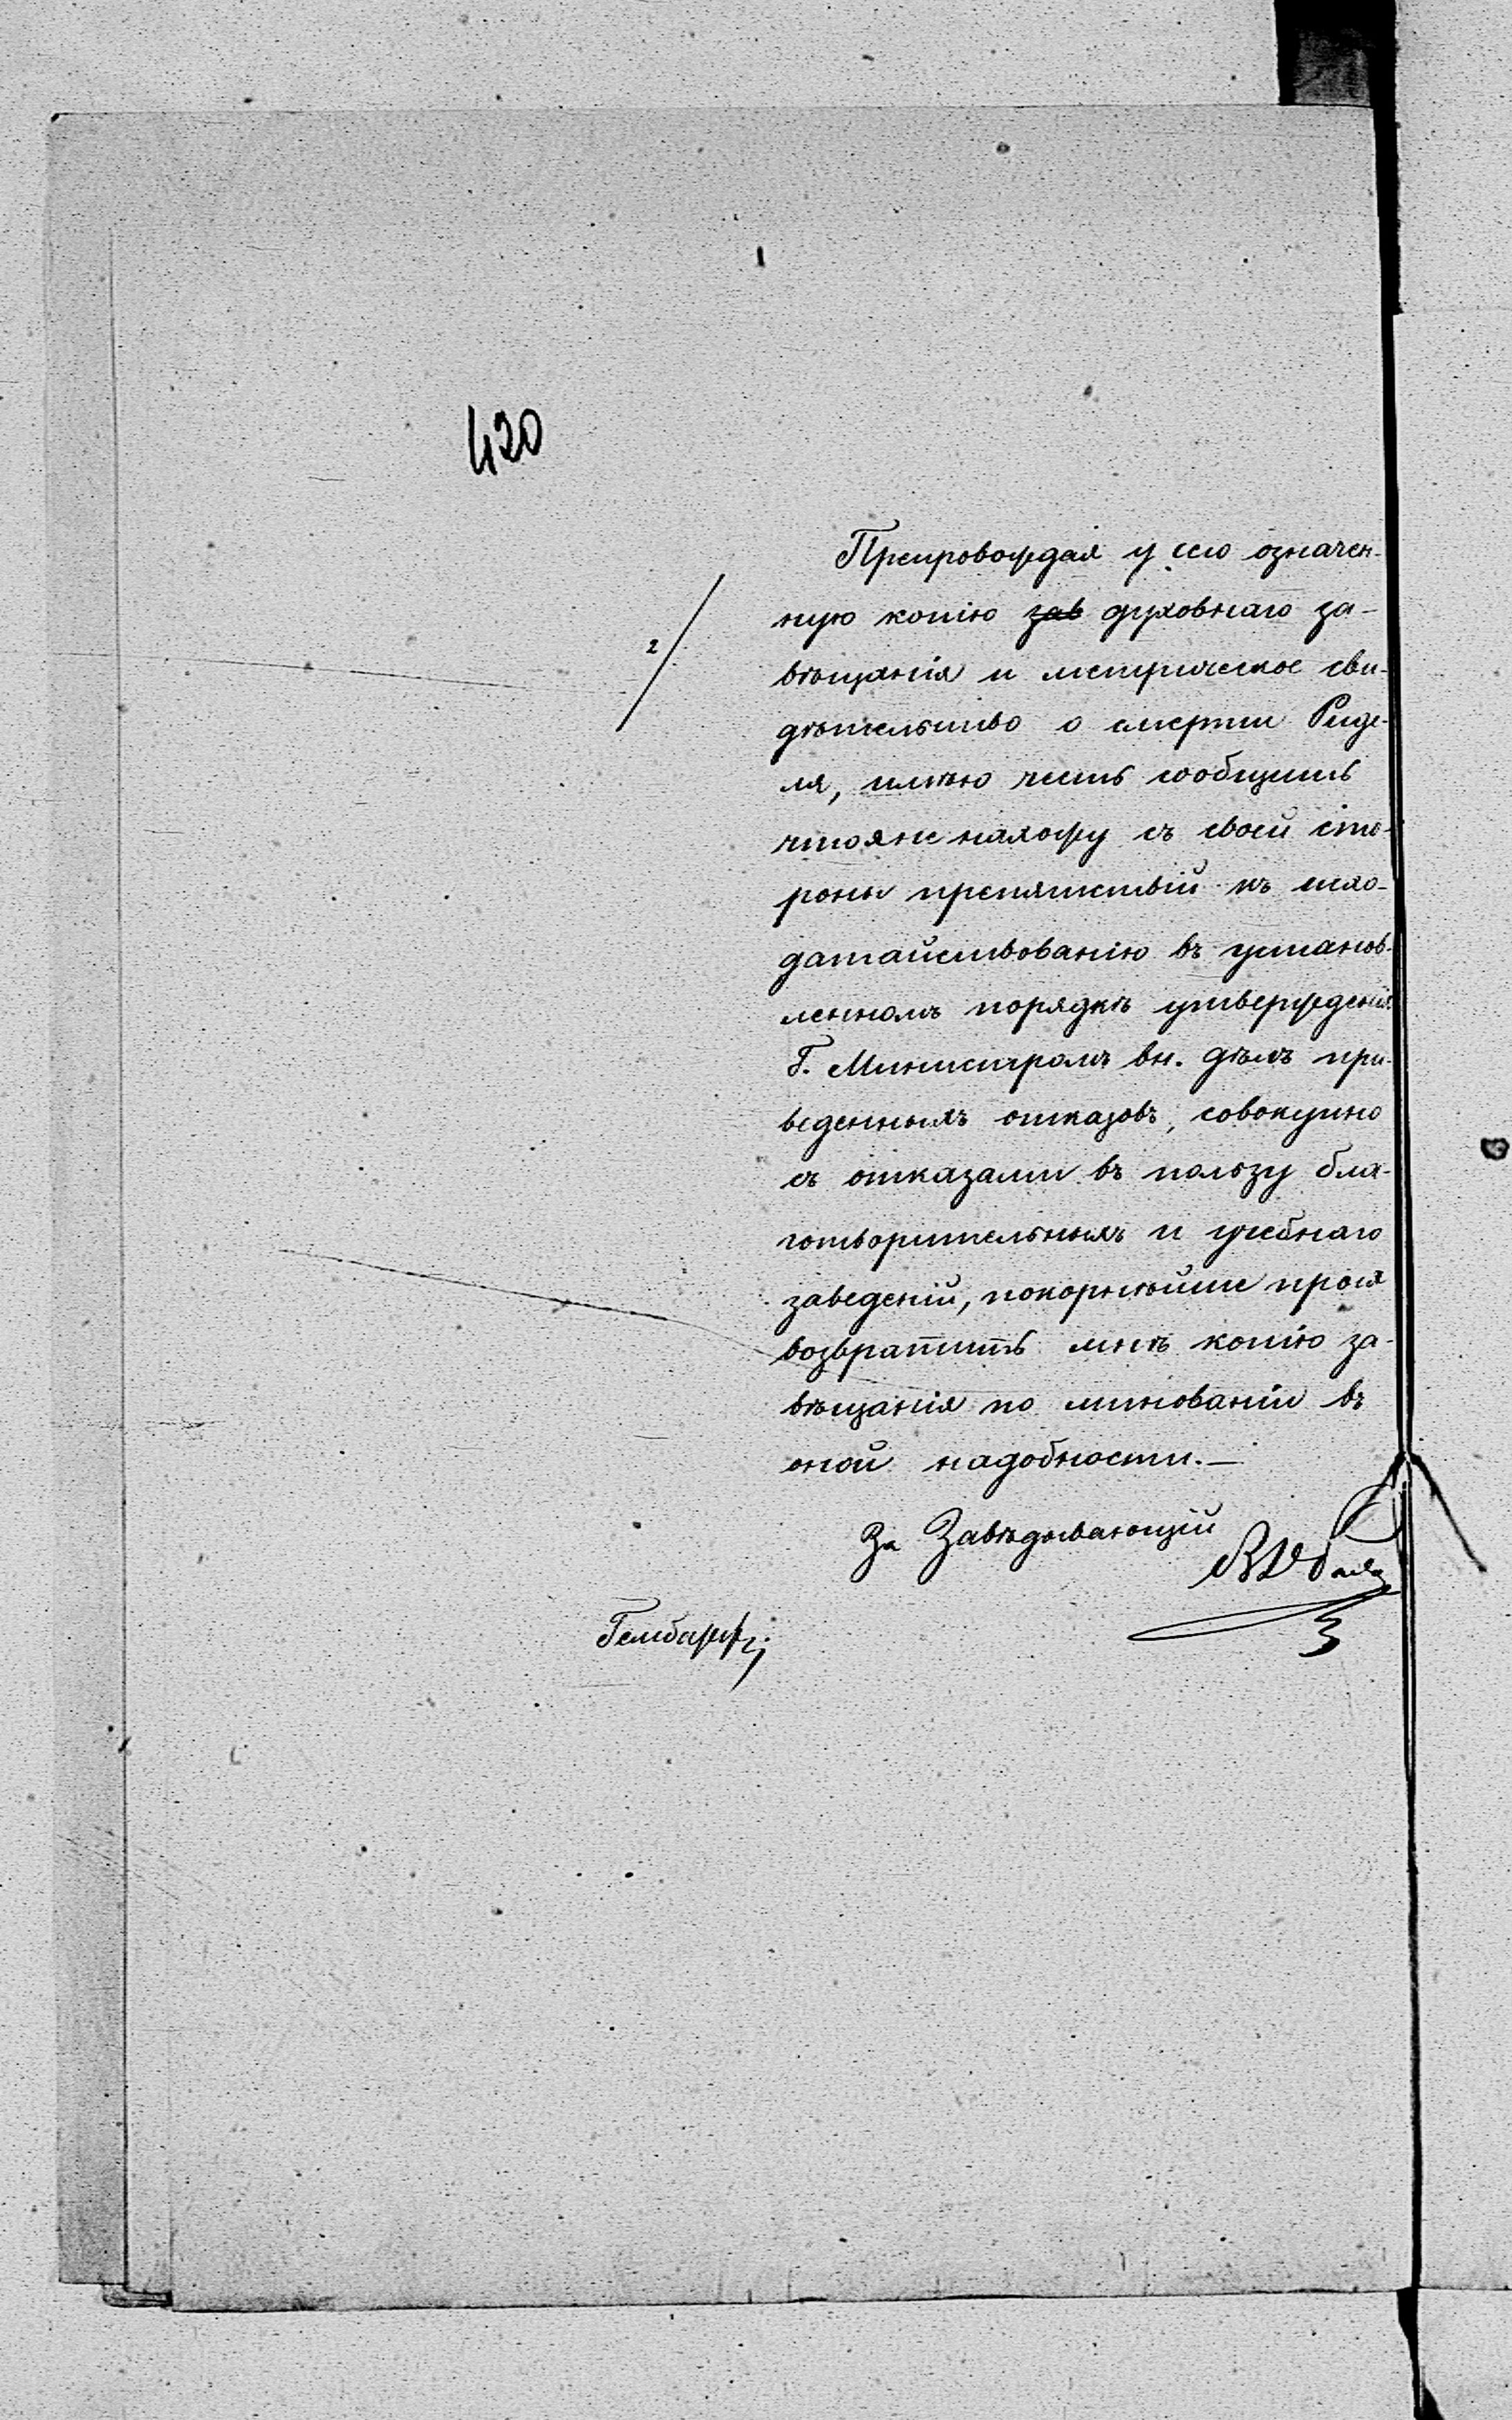 420
Препровождая у сего означен-
2/
ную копію зав духовнаго за-
вѣщанія и метрическое сви-
дѣтельство о смерти Риде-
ля, имѣю честь сообщить
что я не нахожу съ своей сто-
роны препятствій къ исхо-
датайствованію въ установ-
ленномъ порядкѣ утвержденія
Г. Министромъ вн. дѣлъ при-
веденныхъ отказовъ, совокупно
съ отказами въ пользу бла-
готворительныхъ и учебнаго
заведеній, покорнѣйше прося
возвратить мнѣ копію за-
вѣщанія по минованіи въ
оной надобности.—
За Завѣдывающій